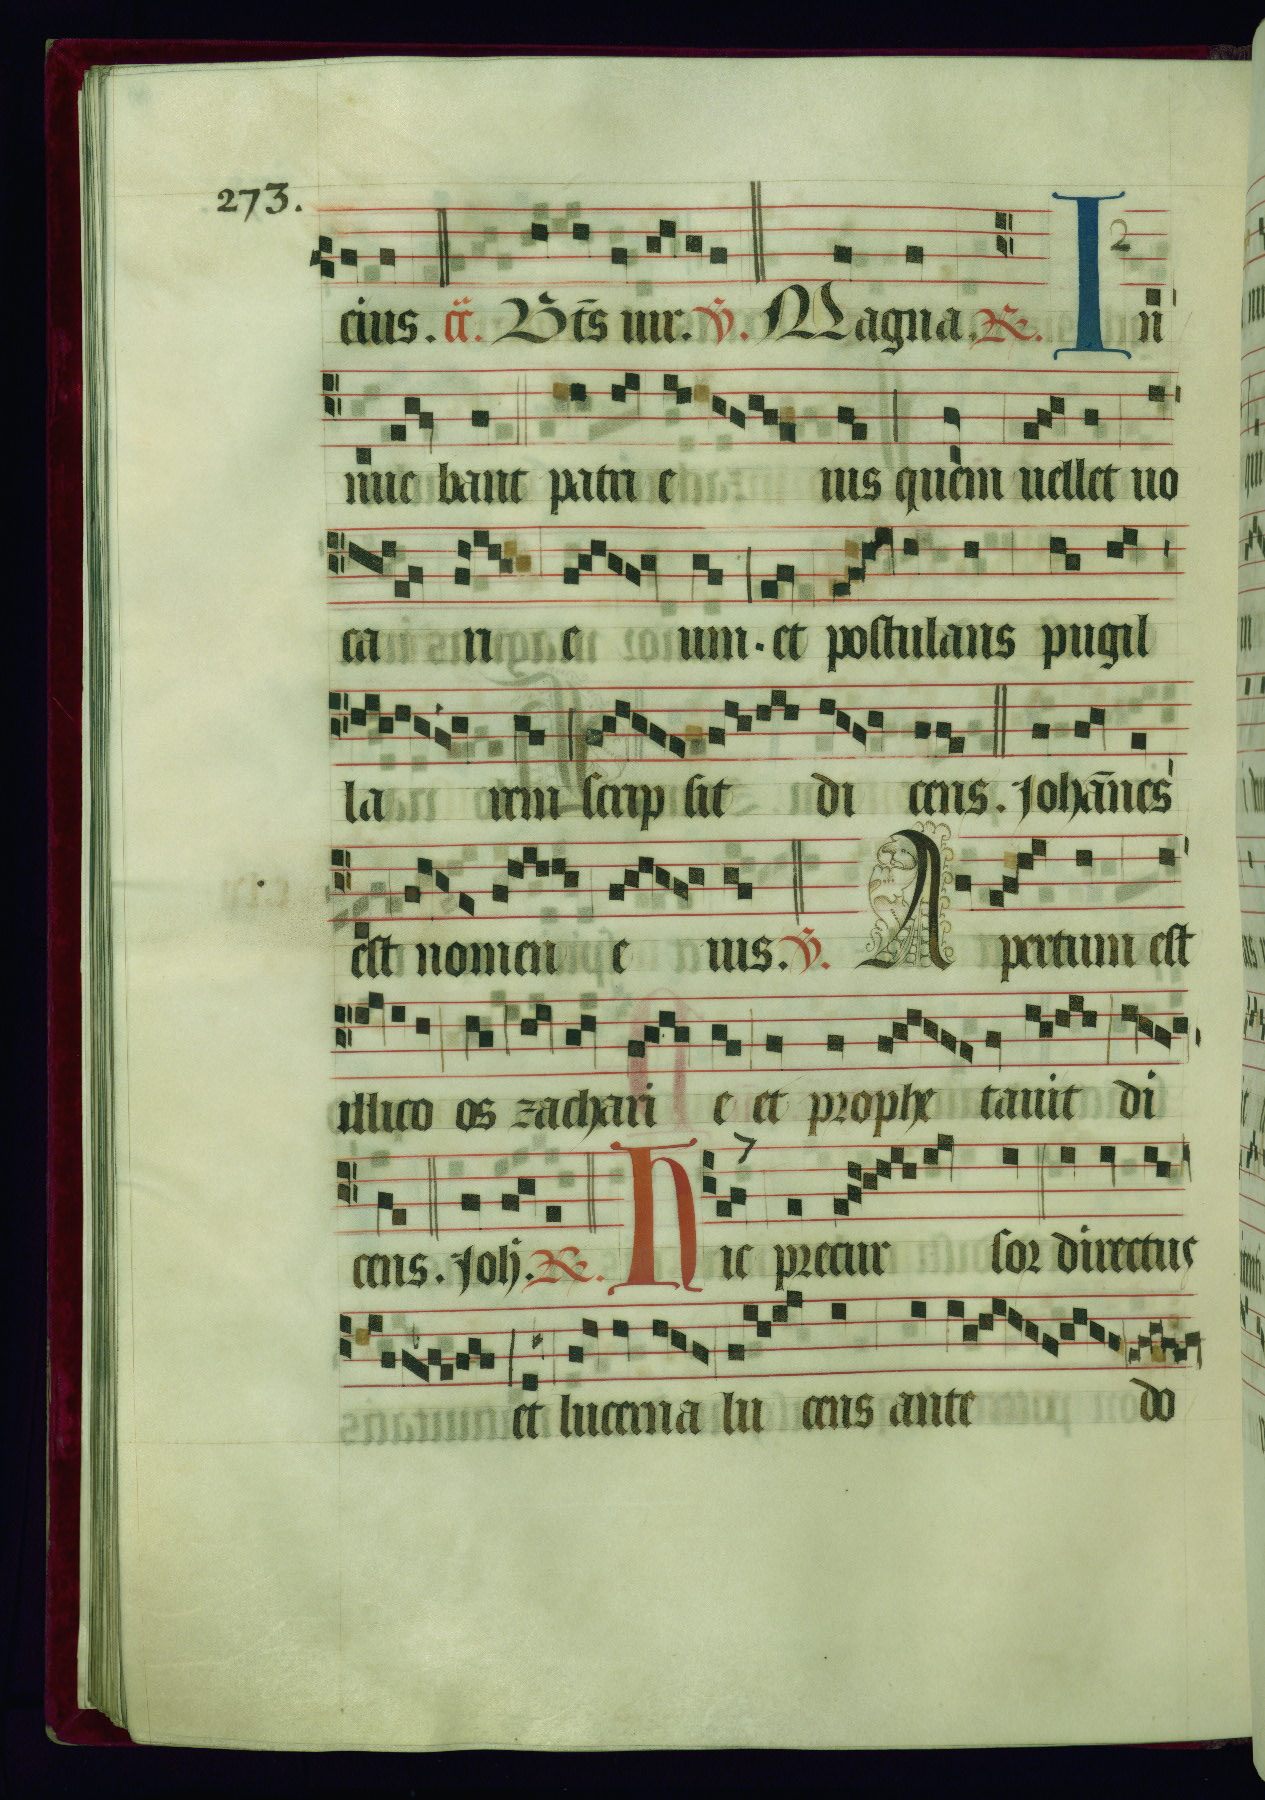 273.
cius. cã. Bt̄s uir. V. Magna. R. I 2 n
nue bant patri e ius quem uellet uo
ca ri e um. et postulans pugil
la rem scrip sit di cens. Johānes
est nomen e ius. V. A pertum est
illico os zachari e et prophe tauit di
cens. Joh. R. H 7 ic precur sor directus
et lucerna lu cens ante do